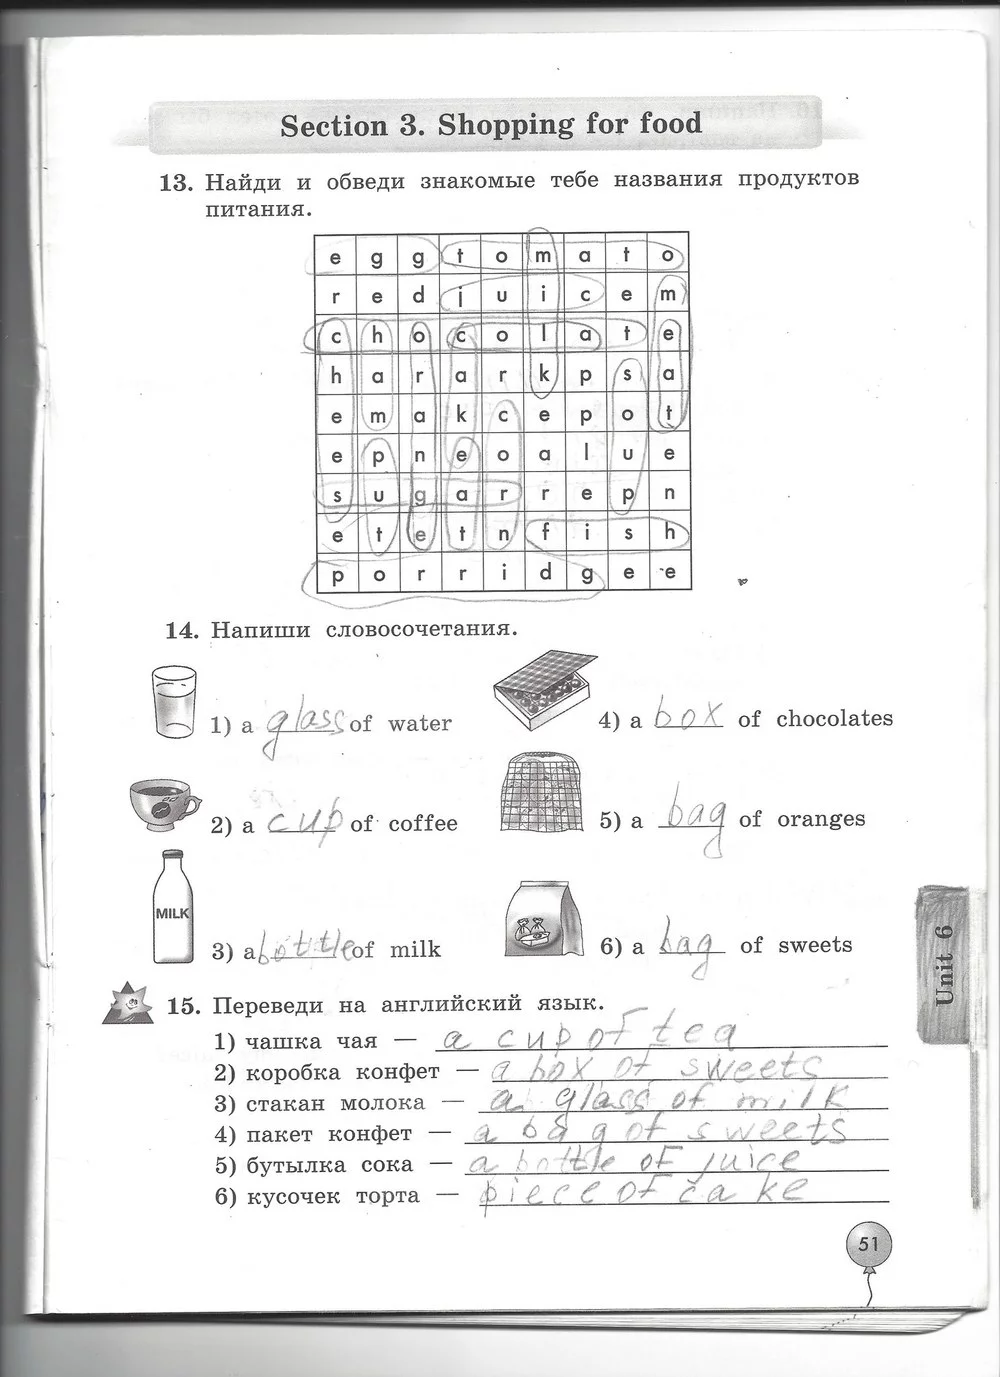 Section 3. Shopping for food
13. Найди и обведи знакомые тебе названия продуктов
питания.
e g g t o m a t o
r e d j u i c e m
c h o c o l a t e
h a r a r k p s a
e m a k c e p o t
e p n e o a l u e
s u g a r r e p n
e t e t n f i s h
p o r r i d g e e
14. Напиши словосочетания.
1) a glass of water
4) a box of chocolates
2) a cup of coffee
5) a bag of oranges
MILK
3) a bottle of milk
6) a bag of sweets
Unit 6
15. Переведи на английский язык.
1) чашка чая — a cup of tea
2) коробка конфет — a box of sweets
3) стакан молока — a glass of milk
4) пакет конфет — a bag of sweets
5) бутылка сока — a bottle of juice
6) кусочек торта — piece of cake
51